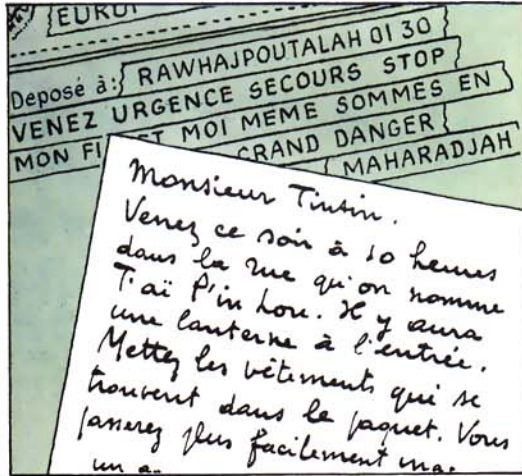 Deposé à: RAWHAJPOUTALAH 01 30
VENEZ URGENCE SECOURS STOP
MON FI ET MOI MEME SOMMES EN
GRAND DANGER
MAHARADJAH
Monsieur Tintin.
Venez ce soir à 10 heures
dans la rue qu'on nomme
T'aï P'in Lou. Il y aura
une lanterne à l'entrée.
Mettez les vêtements qui se
trouvent dans le paquet. Vous
passerez plus facilement
un